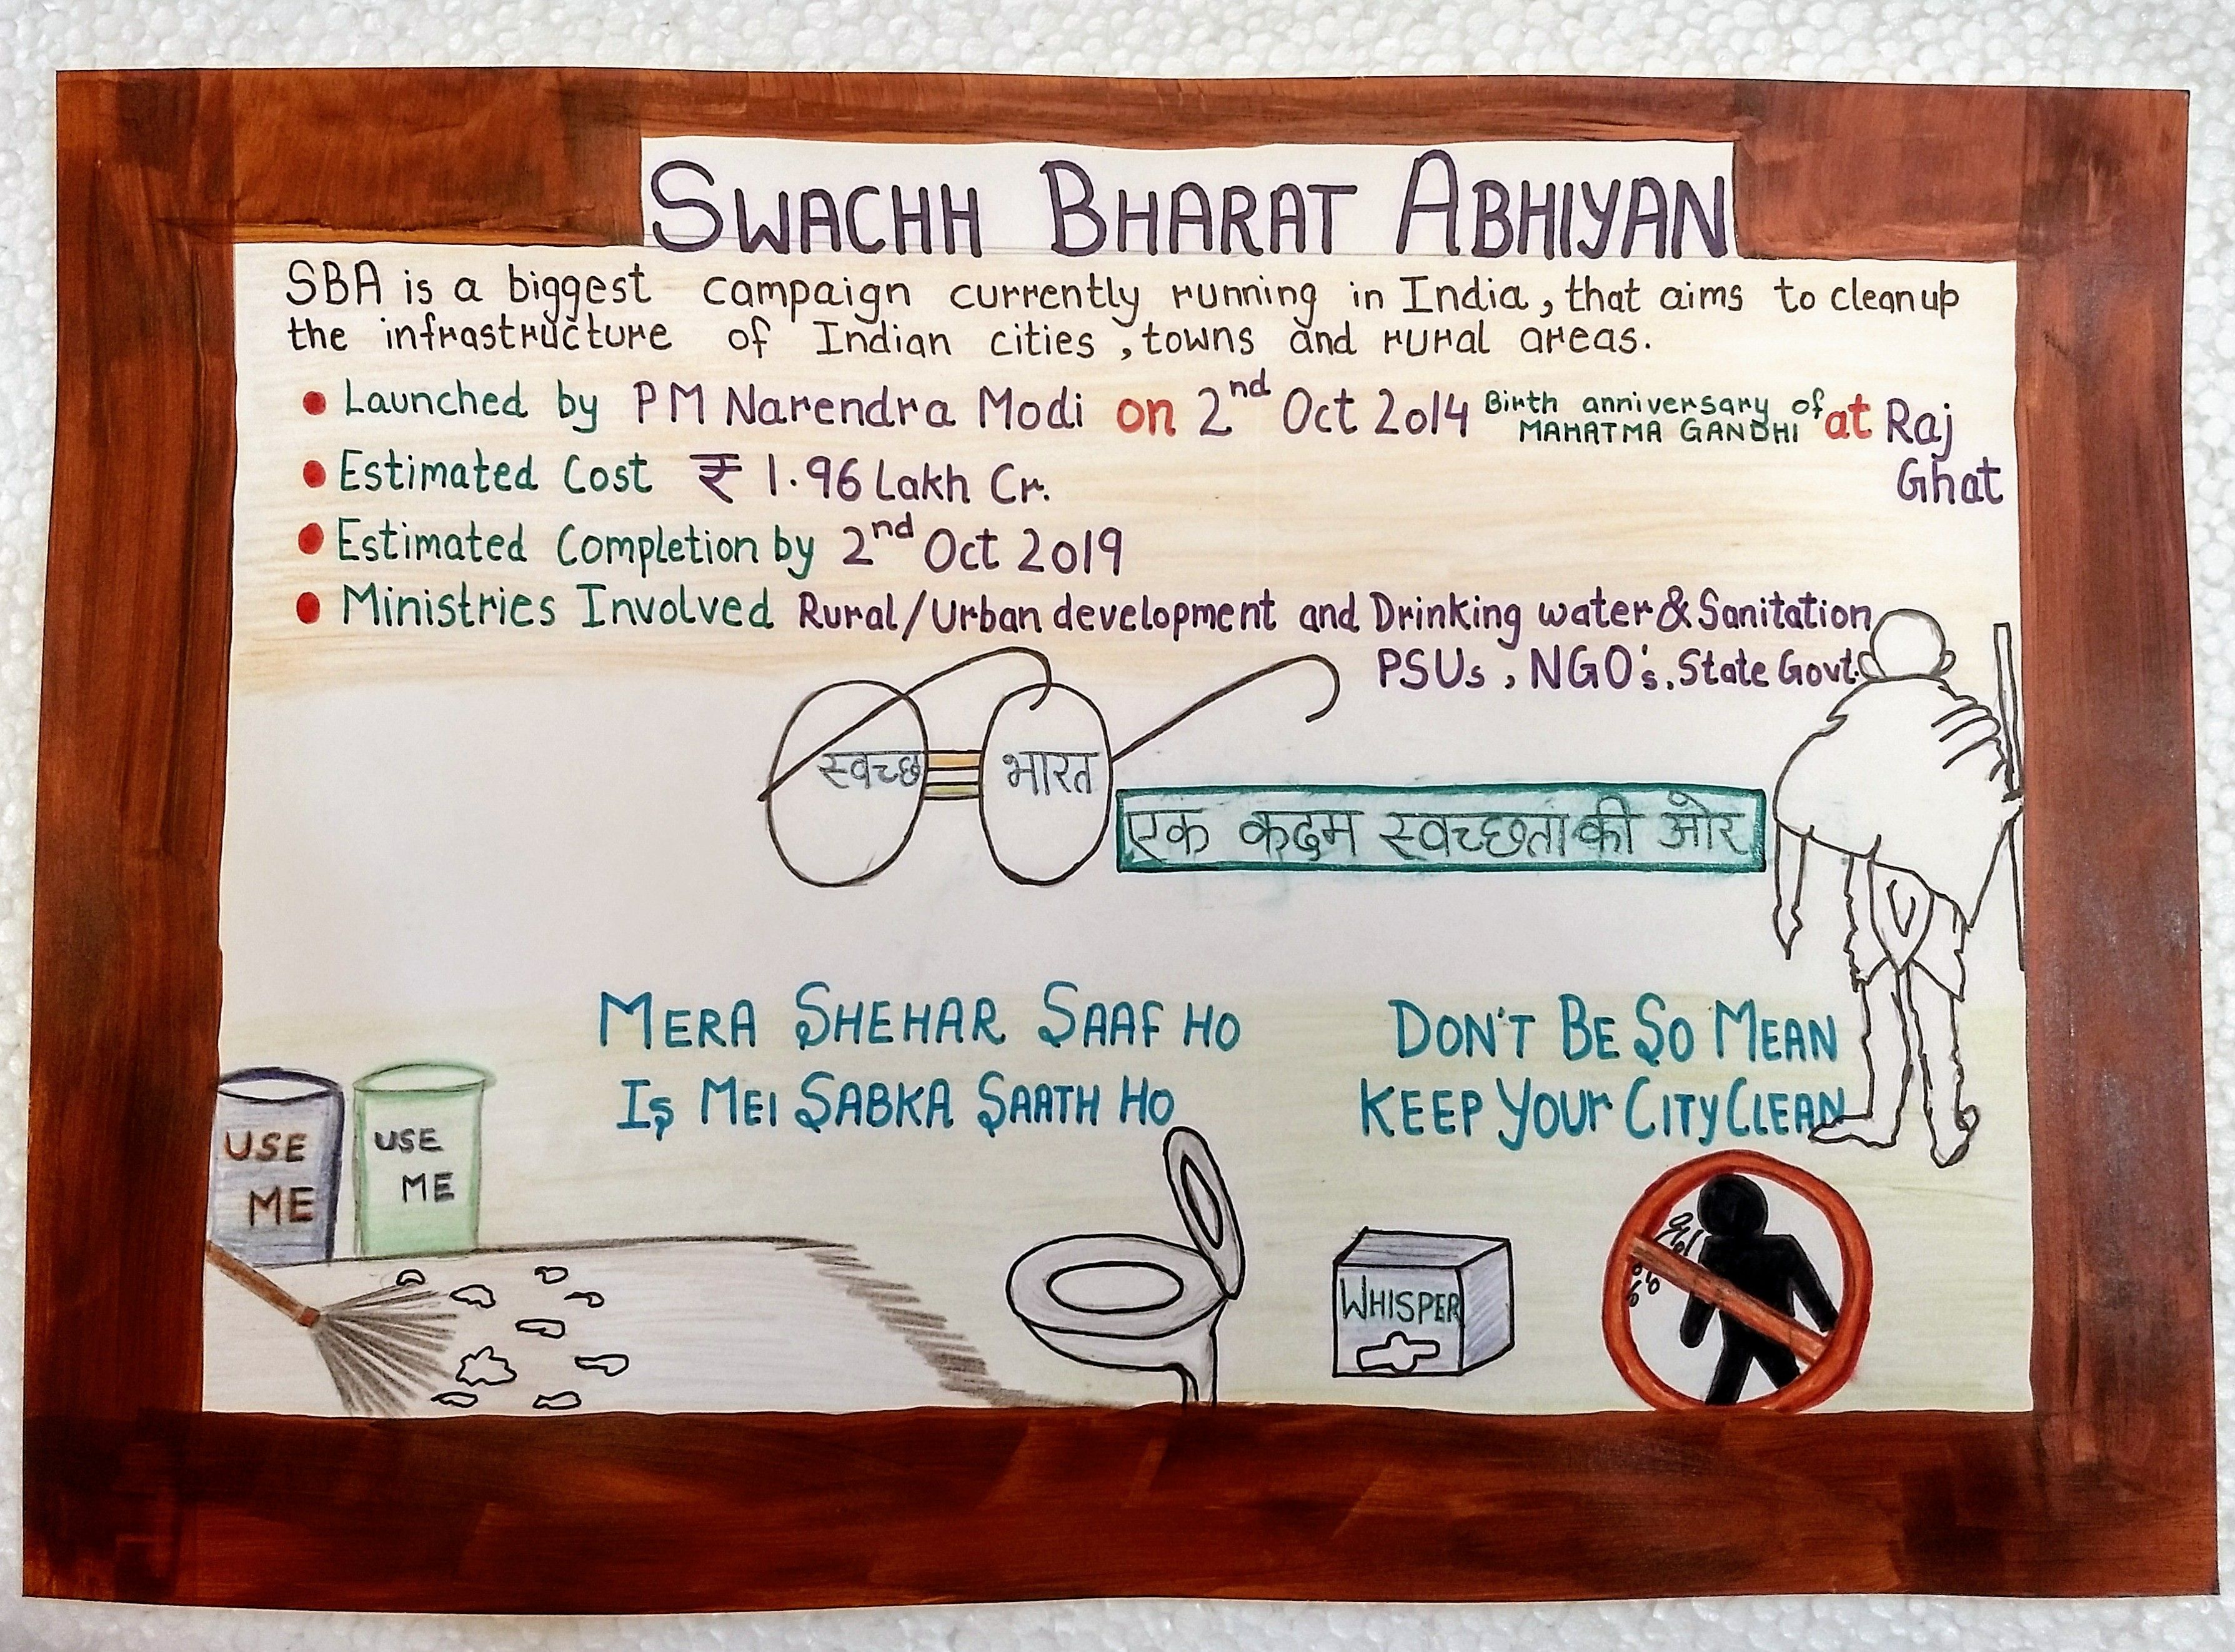 SWACHH BHARAT ABHIYAN
SBA is a biggest campaign currently running in India, that aims to cleanup
the infrastructure of Indian cities, towns and rural areas.
Launched by PM Narendra Modi on 2nd Oct 2014 Birth anniversary of MAHATMA GANDHI at Raj
Ghat
Estimated Cost ₹ 1.96 Lakh Cr.
Estimated Completion by 2nd Oct 2019
Ministries Involved Rural/Urban development and Drinking water & Sanitation
PSUs, NGO's, State Govt.
स्वच्छ भारत
एक कदम स्वच्छता की ओर
MERA SHEHAR SAAF HO
IS MEI SABKA SAATH HO
DON'T BE SO MEAN
KEEP YOUR CITY CLEAN
USE
ME
USE
ME
WHISPER